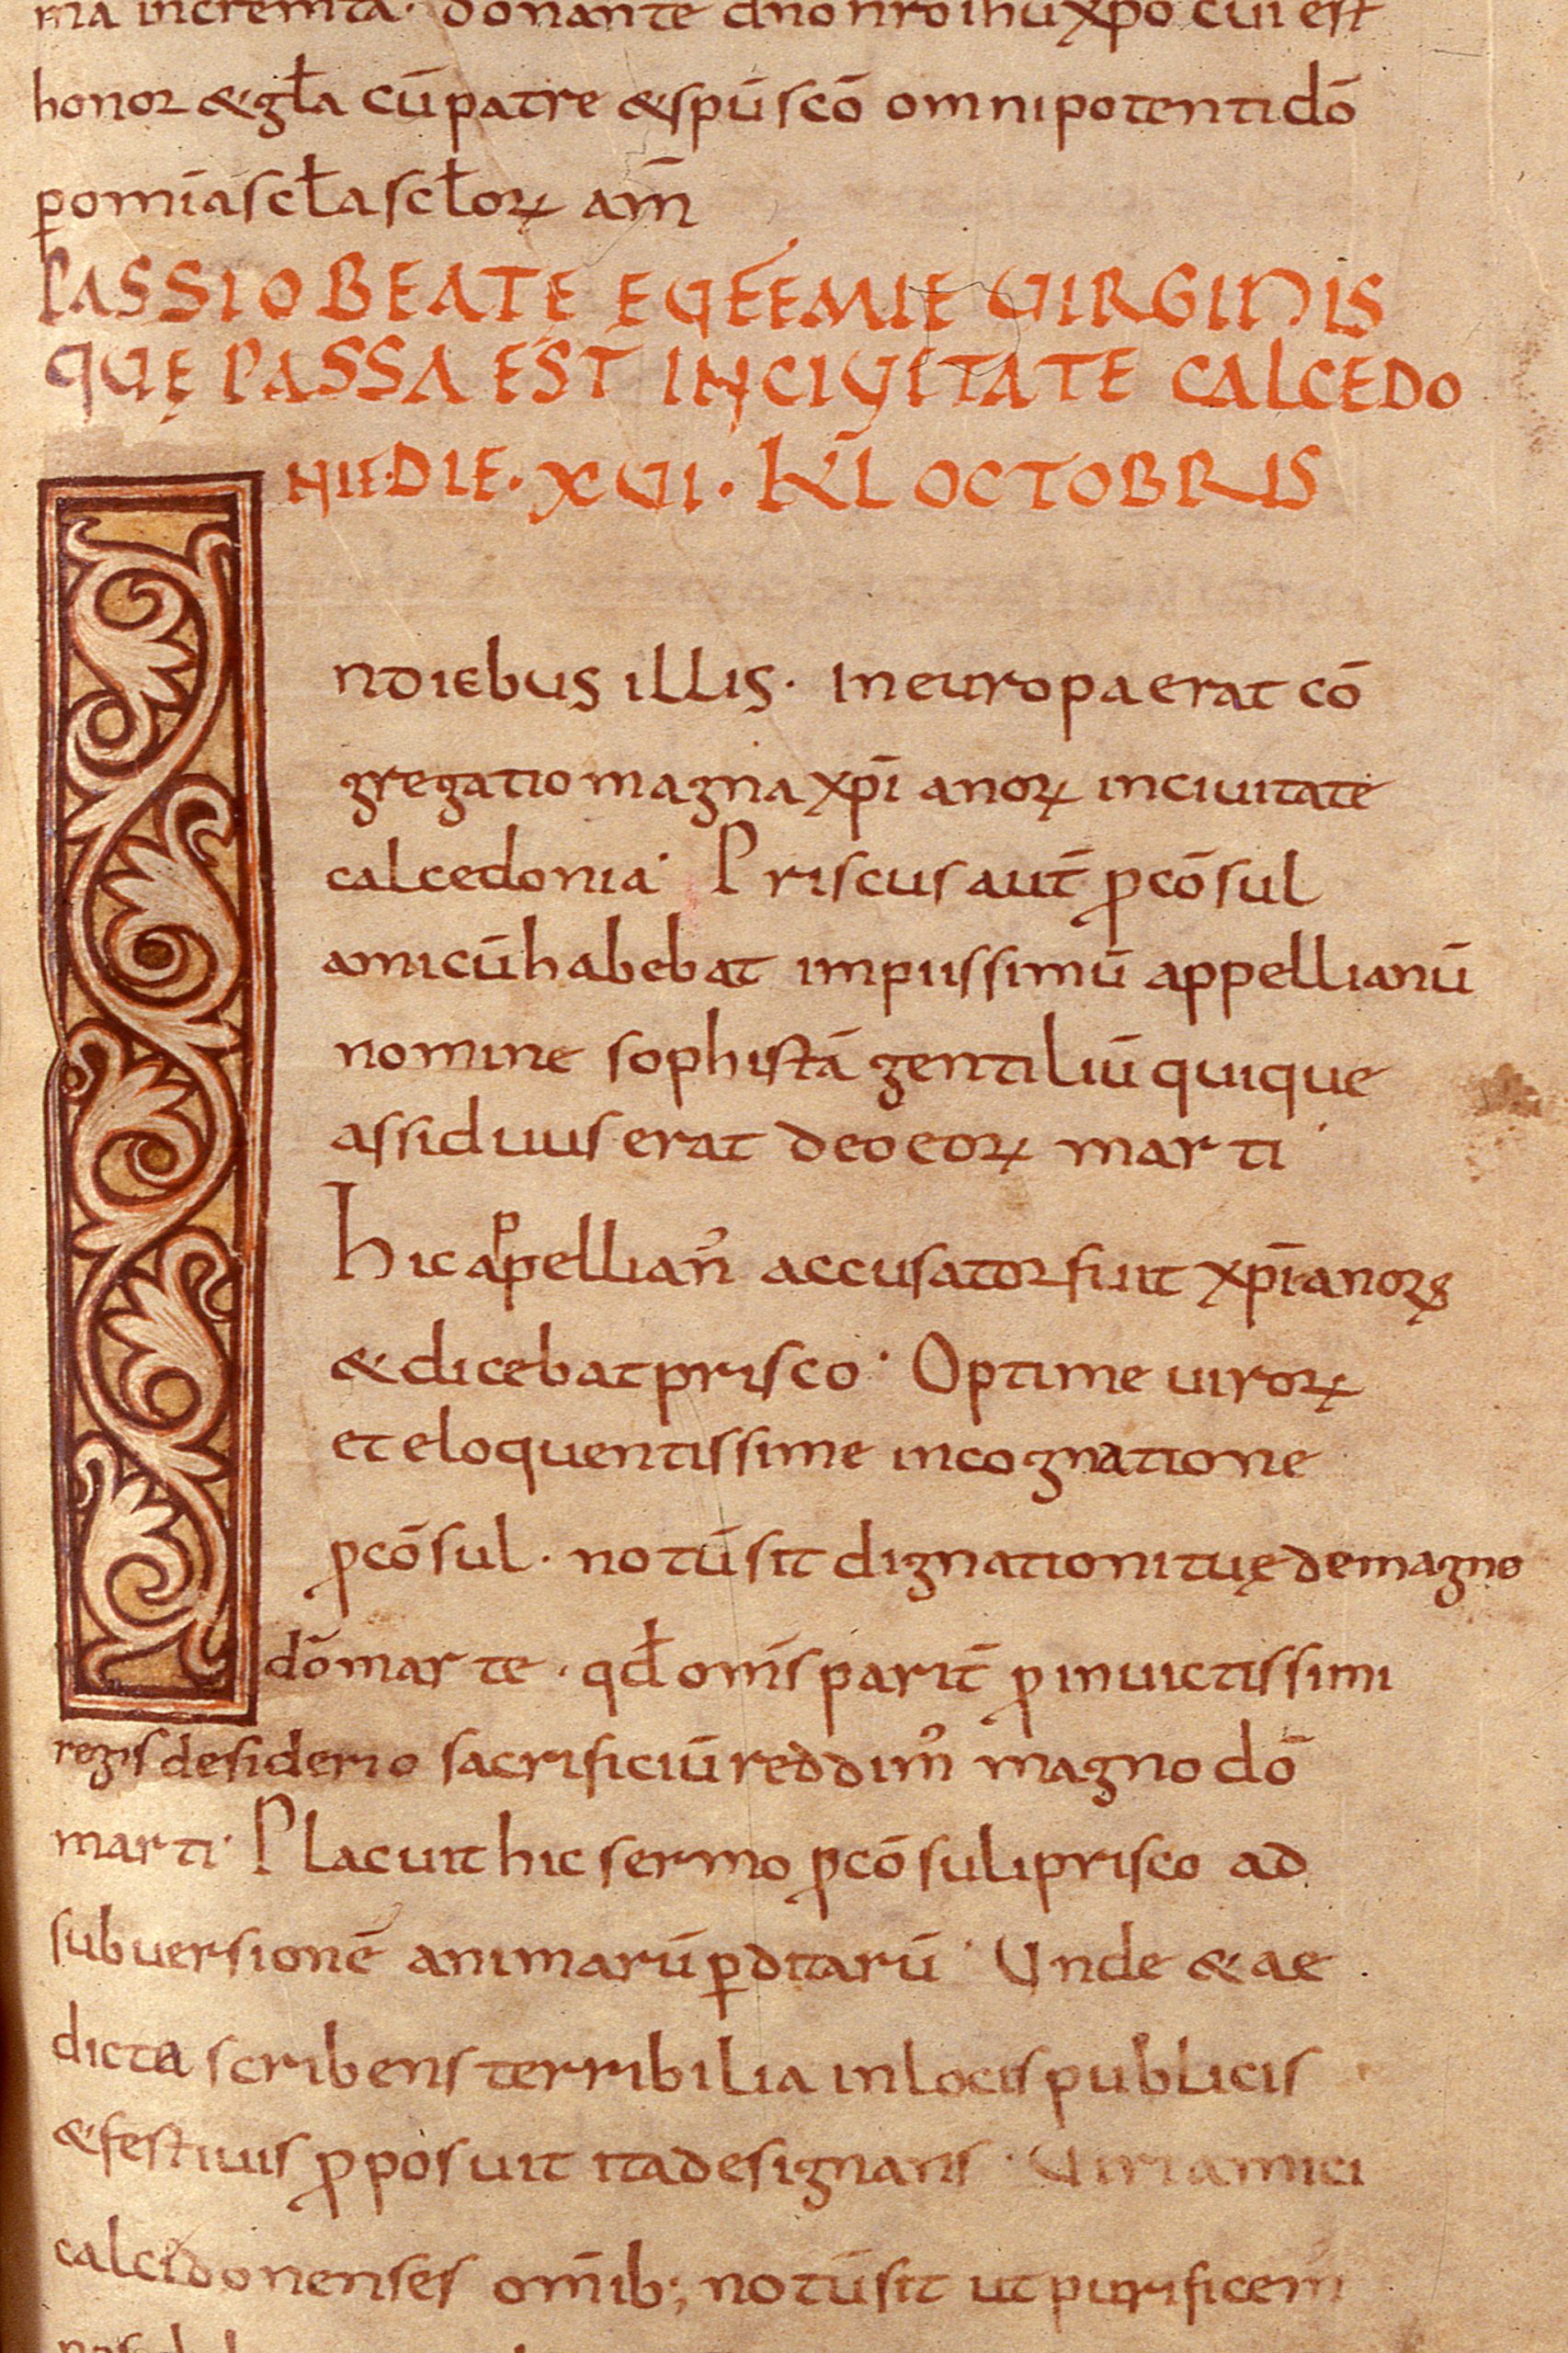 ma incremta. donante dn̄o nr̄o ihu xp̄o cui est
honor & gła cū patre & spū scō omnipotenti dō
p̱ omīa scła scłoꝝ am̄
PASSIO BEATE EUFEMIE UIRGINIS
QUĘ PASSA EST IN CIUITATE CALCEDO
NIE DIE · XVI · KL̄ OCTOBRIS
In diebus illis · In europa erat cō
gregatio magna xp̄ianoꝝ in ciuitate
calcedonia · Priscus aut̄ ꝓcōsul
amicū habebat impiissimū appellianū
nomine sophistā gentiliū quique
assiduus erat deo eoꝝ marti ·
Hic appellian᷒ accusator fuit xp̄ianoꝝ
& dicebat prisco · Optime uiroꝝ
et eloquentissime in cognatione
ꝓcōsul · notū sit dignationi tuę de magno
dō marte · qđ om̄s parit̄ ꝓ inuictissimi
regis desiderio sacrificiū reddim᷒ magno dō
marti · Placuit hic sermo ꝓcōsuli prisco ad
subuersionē animarū ꝑditarū · Unde & ae
dicta scribens terribilia in locis publicis
& festiuis ꝓposuit ita designans · Uiri amici
calcidonenses om̄ib; notū sit ut purificem̄